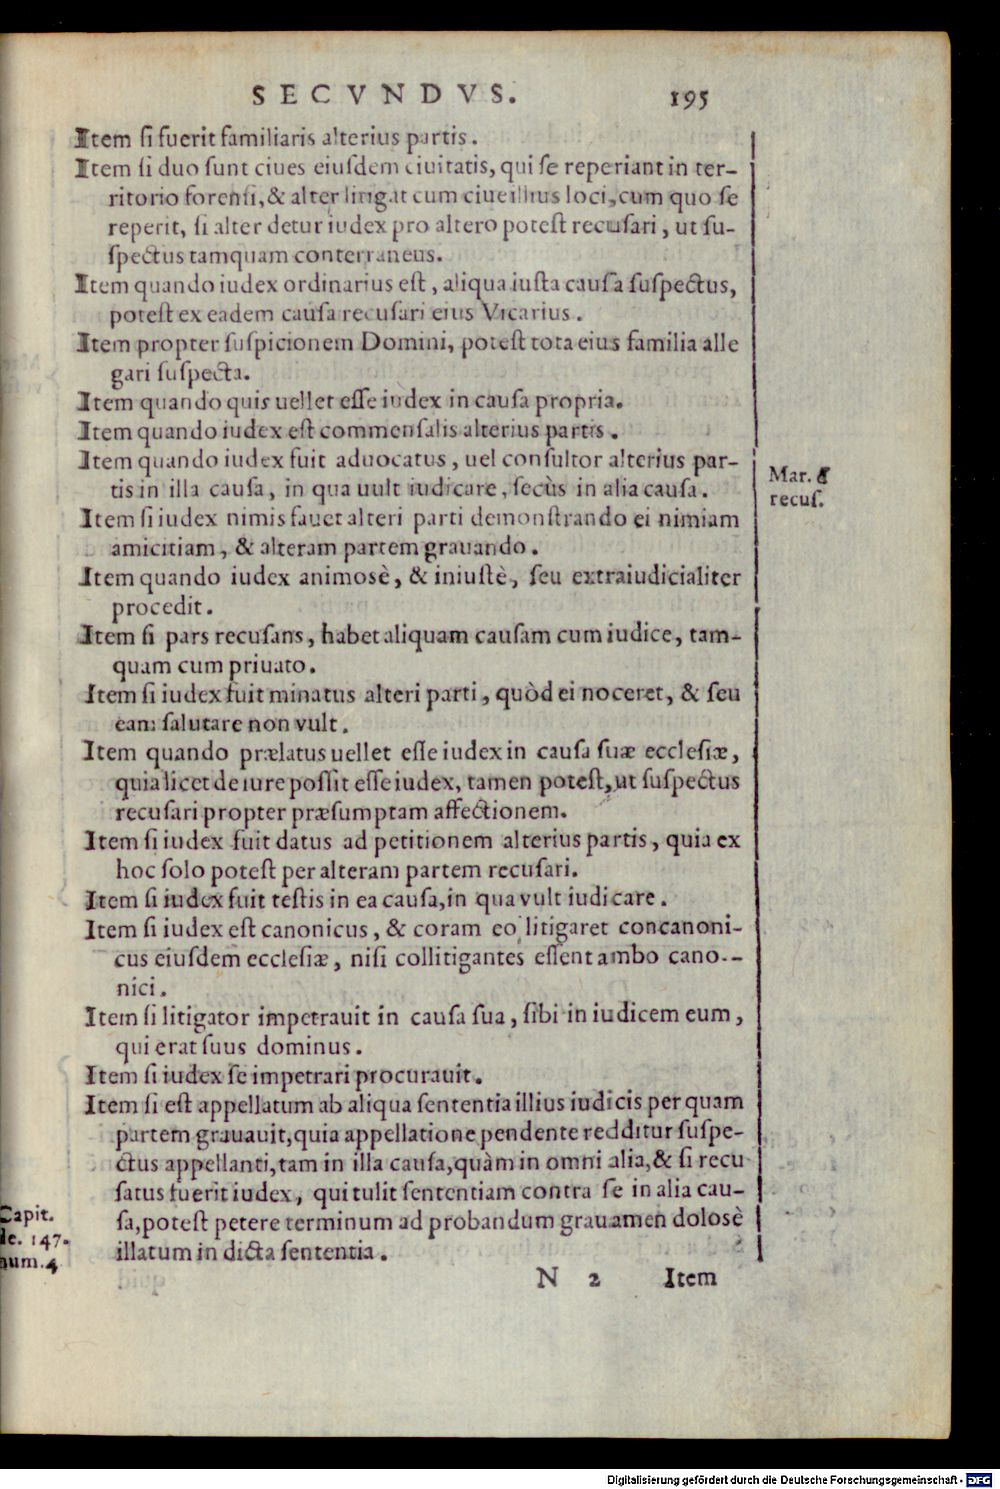 SECVNDVS. 195
Item si fuerit familiaris alterius partis.
Item si duo sunt ciues eiusdem ciuitatis, qui se reperiant in ter-
ritorio forensi, & alter litigat cum ciue illius loci, cum quo se
reperit, si alter detur iudex pro altero potest recusari, ut su-
spectus tamquam conterraneus.
Item quando iudex ordinarius est, aliqua iusta causa suspectus,
potest ex eadem causa recusari eius Vicarius.
Item propter suspicionem Domini, potest tota eius familia alle
gari suspecta.
Item quando quis uellet esse iudex in causa propria.
Item quando iudex est commensalis alterius partis.
Item quando iudex fuit aduocatus, uel consultor alterius par-
tis in illa causa, in qua uult iudicare, secùs in alia causa.
Mar. &
recus.
Item si iudex nimis fauet alteri parti demonstrando ei nimiam
amicitiam, & alteram partem grauando.
Item quando iudex animosè, & iniustè, seu extraiudicialiter
procedit.
Item si pars recusans, habet aliquam causam cum iudice, tam-
quam cum priuato.
Item si iudex fuit minatus alteri parti, quòd ei noceret, & seu
eam salutare non vult.
Item quando prælatus uellet esse iudex in causa suæ ecclesiæ,
quia licet de iure possit esse iudex, tamen potest, ut suspectus
recusari propter præsumptam affectionem.
Item si iudex fuit datus ad petitionem alterius partis, quia ex
hoc solo potest per alteram partem recusari.
Item si iudex fuit testis in ea causa, in qua vult iudicare.
Item si iudex est canonicus, & coram eo litigaret concanoni-
cus eiusdem ecclesiæ, nisi collitigantes essent ambo cano--
nici.
Item si litigator impetrauit in causa sua, sibi in iudicem eum,
qui erat suus dominus.
Item si iudex se impetrari procurauit.
Item si est appellatum ab aliqua sententia illius iudicis per quam
partem grauauit, quia appellatione pendente redditur suspe-
ctus appellanti, tam in illa causa, quàm in omni alia, & si recu
satus fuerit iudex, qui tulit sententiam contra se in alia cau-
sa, potest petere terminum ad probandum grauamen dolosè
illatum in dicta sententia.
Capit.
le. 147.
num. 4
N 2 Item
Digitalisierung gefördert durch die Deutsche Forschungsgemeinschaft - DFG